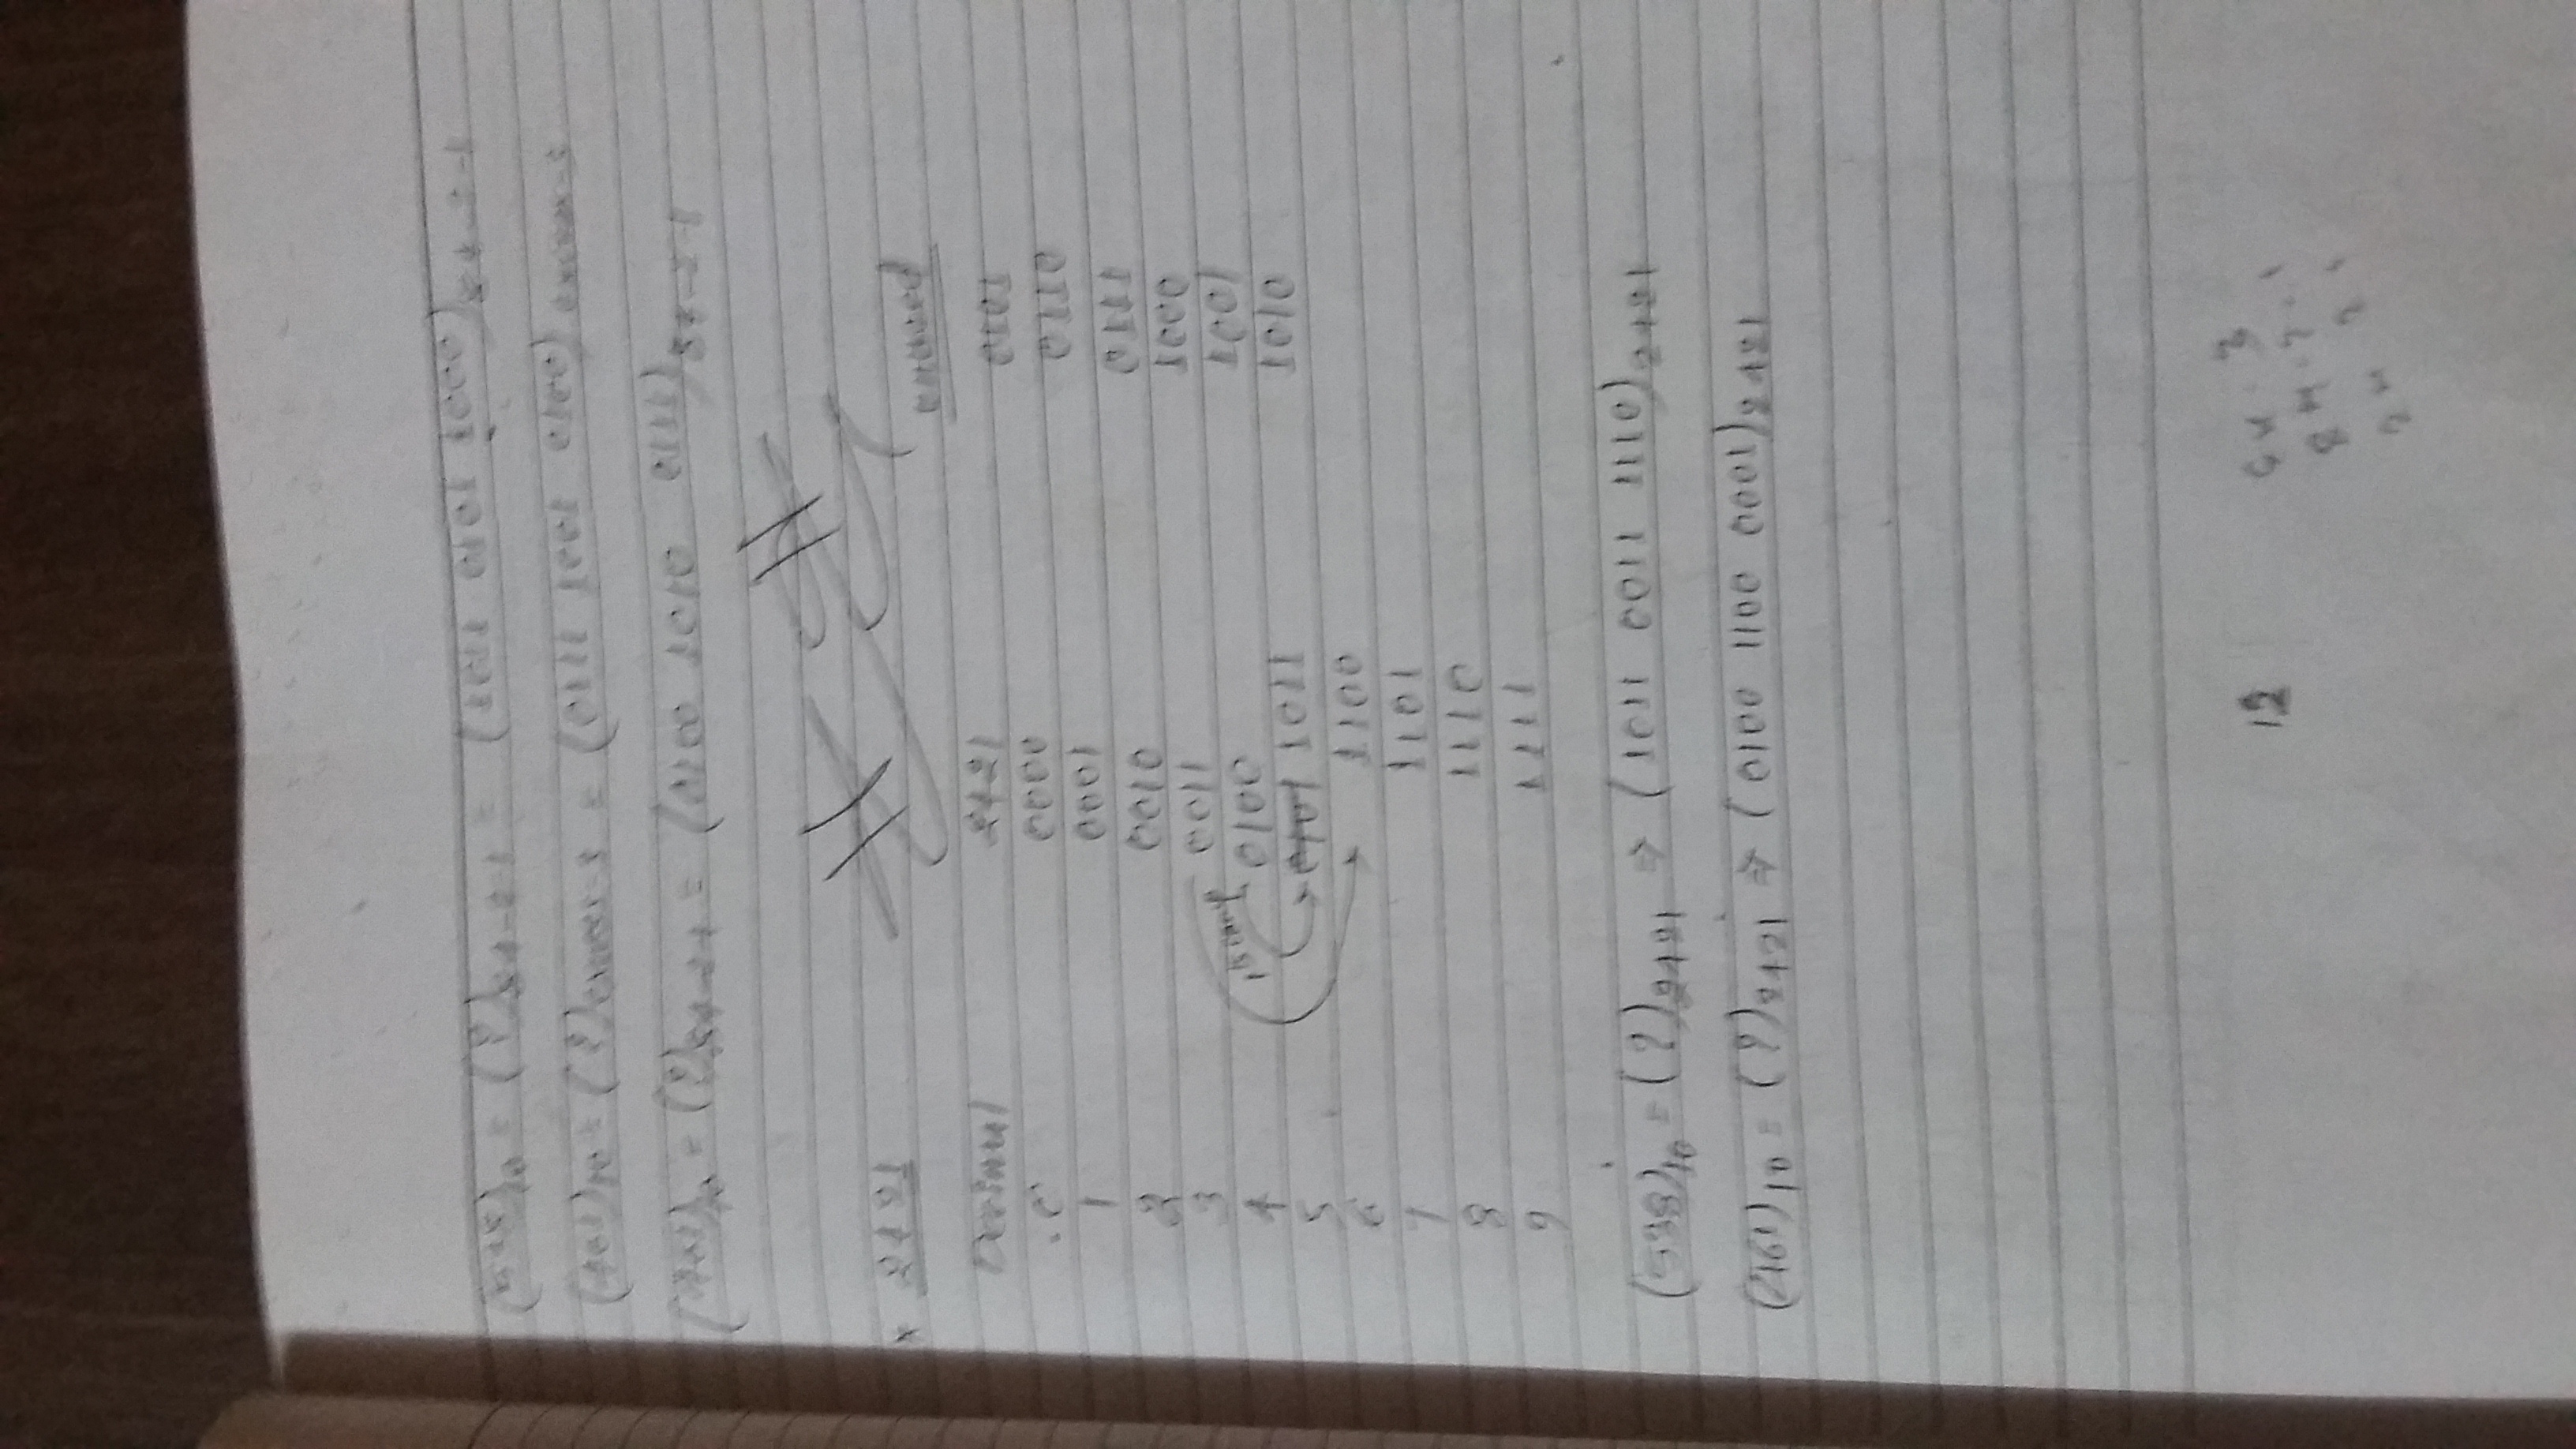 (538)10 = (?)84-2-1 = (1011 0101 1000)84-2-1
(461)10 = (?)excess-3 = (0111 1001 0100)excess-3
(461)10 = (?)84-2-1 = (0100 1010 0111)84-2-1
* 2421
unused
Decimal 2421 0101
0 0000 0110
1 0001 0111
2 0010 1000
3 0011 1001
4 0100 1010
5 0101 1011
6 1100
7 1101
8 1110
9 1111
(538)10 = (?)2421 ⇒ (1011 0011 1110)2421
(461)10 = (?)2421 ⇒ (0100 1100 0001)2421
12